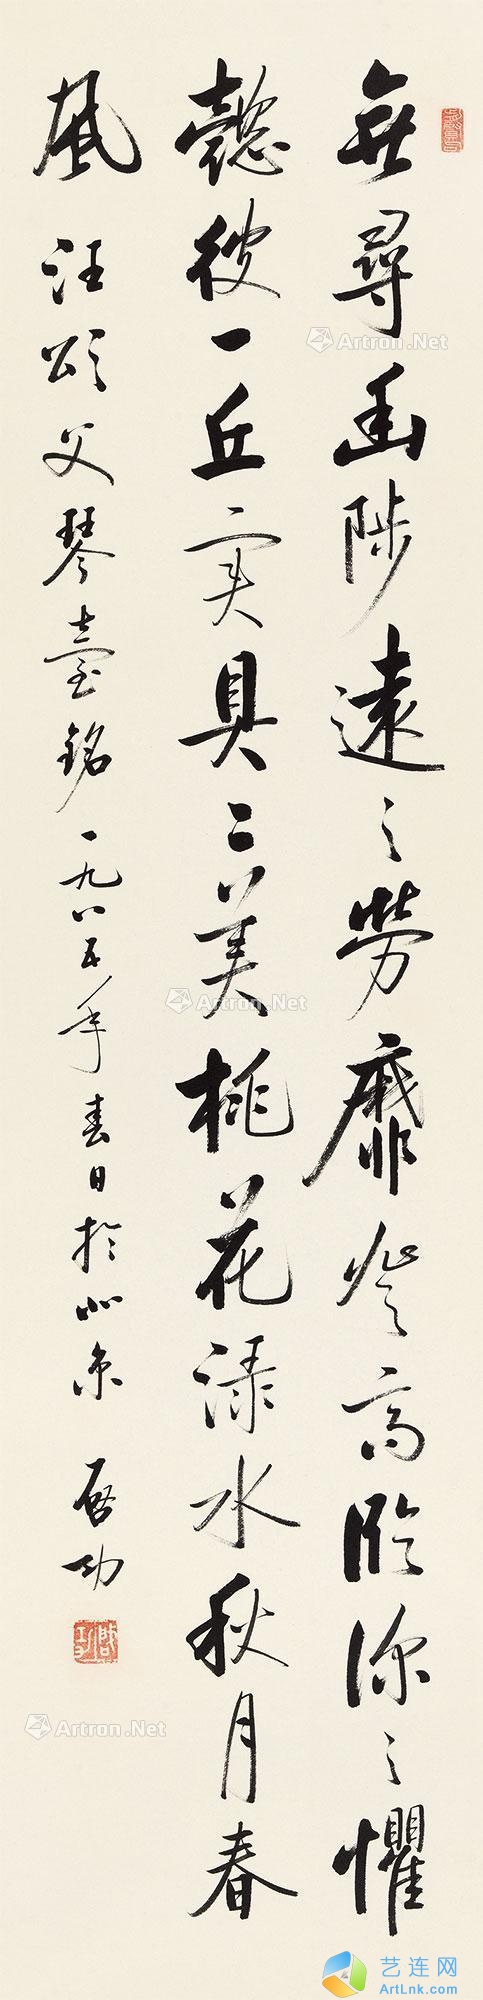 無尋幽陟遠之勞靡登高臨深之懼
懿彼一丘实具二美桃花渌水秋月春
風 汪頌父琴臺銘一九八五年春日於北京 啓功
啓功
Artron.Net
Artron.Net
Artron.Net
艺连网
ArtLnk.com